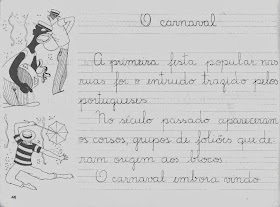 O carnaval
A primeira festa popular nas
ruas foi o entrudo trazido pelos
portugueses.
No século passado apareceram
os corsos, grupos de foliões que de-
ram origem aos blocos.
O carnaval embora vindo